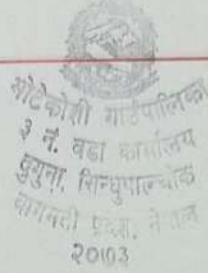 भोटेकोशी गाउँपालिका
३ नं. वडा कार्यालय
दुगुना, सिन्धुपाल्चोक
बागमती प्रदेश, नेपाल
२०७३